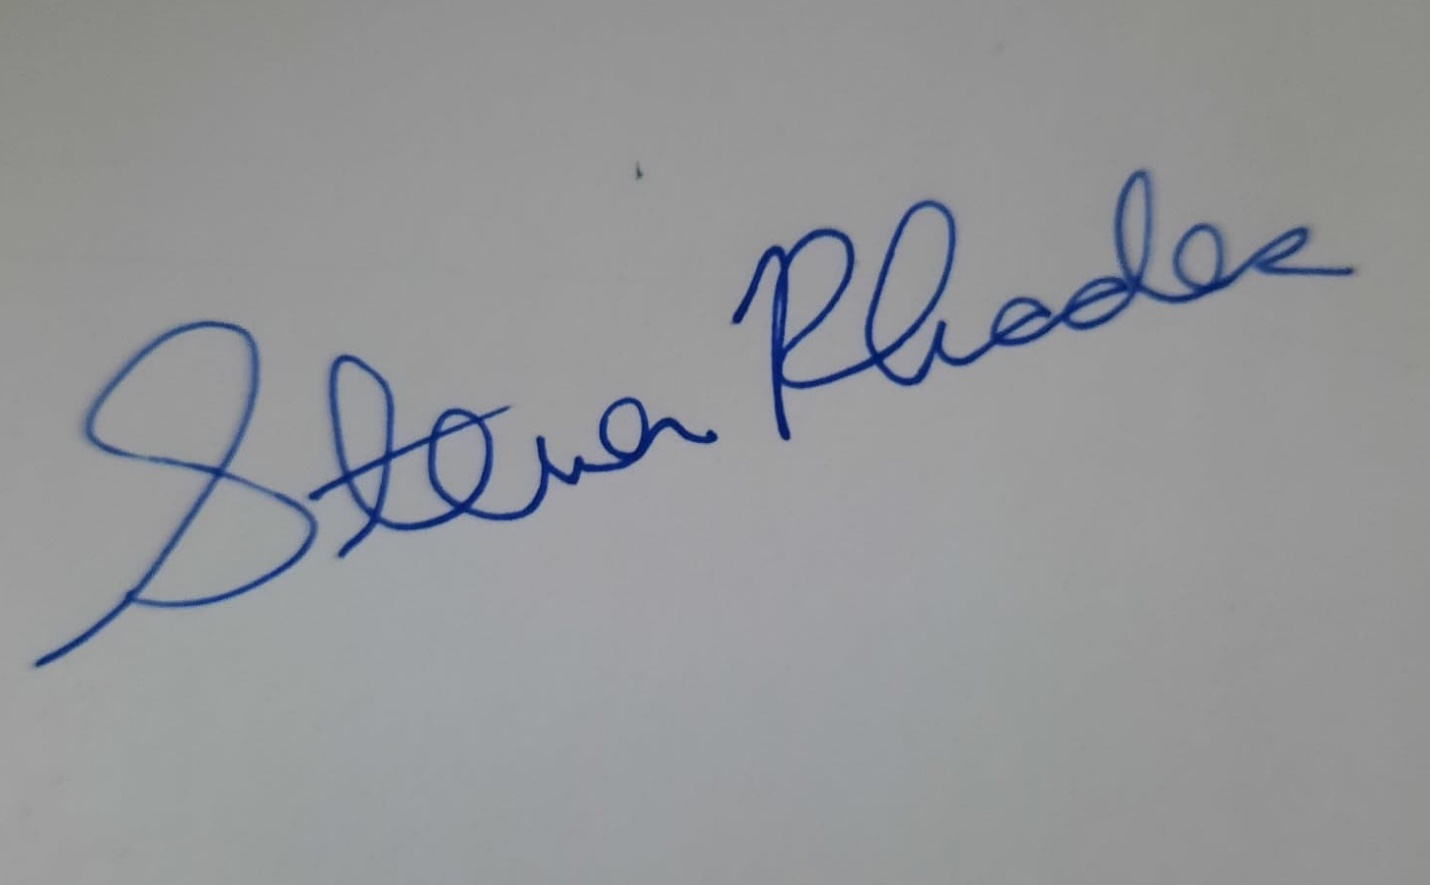 Steven Rhodes